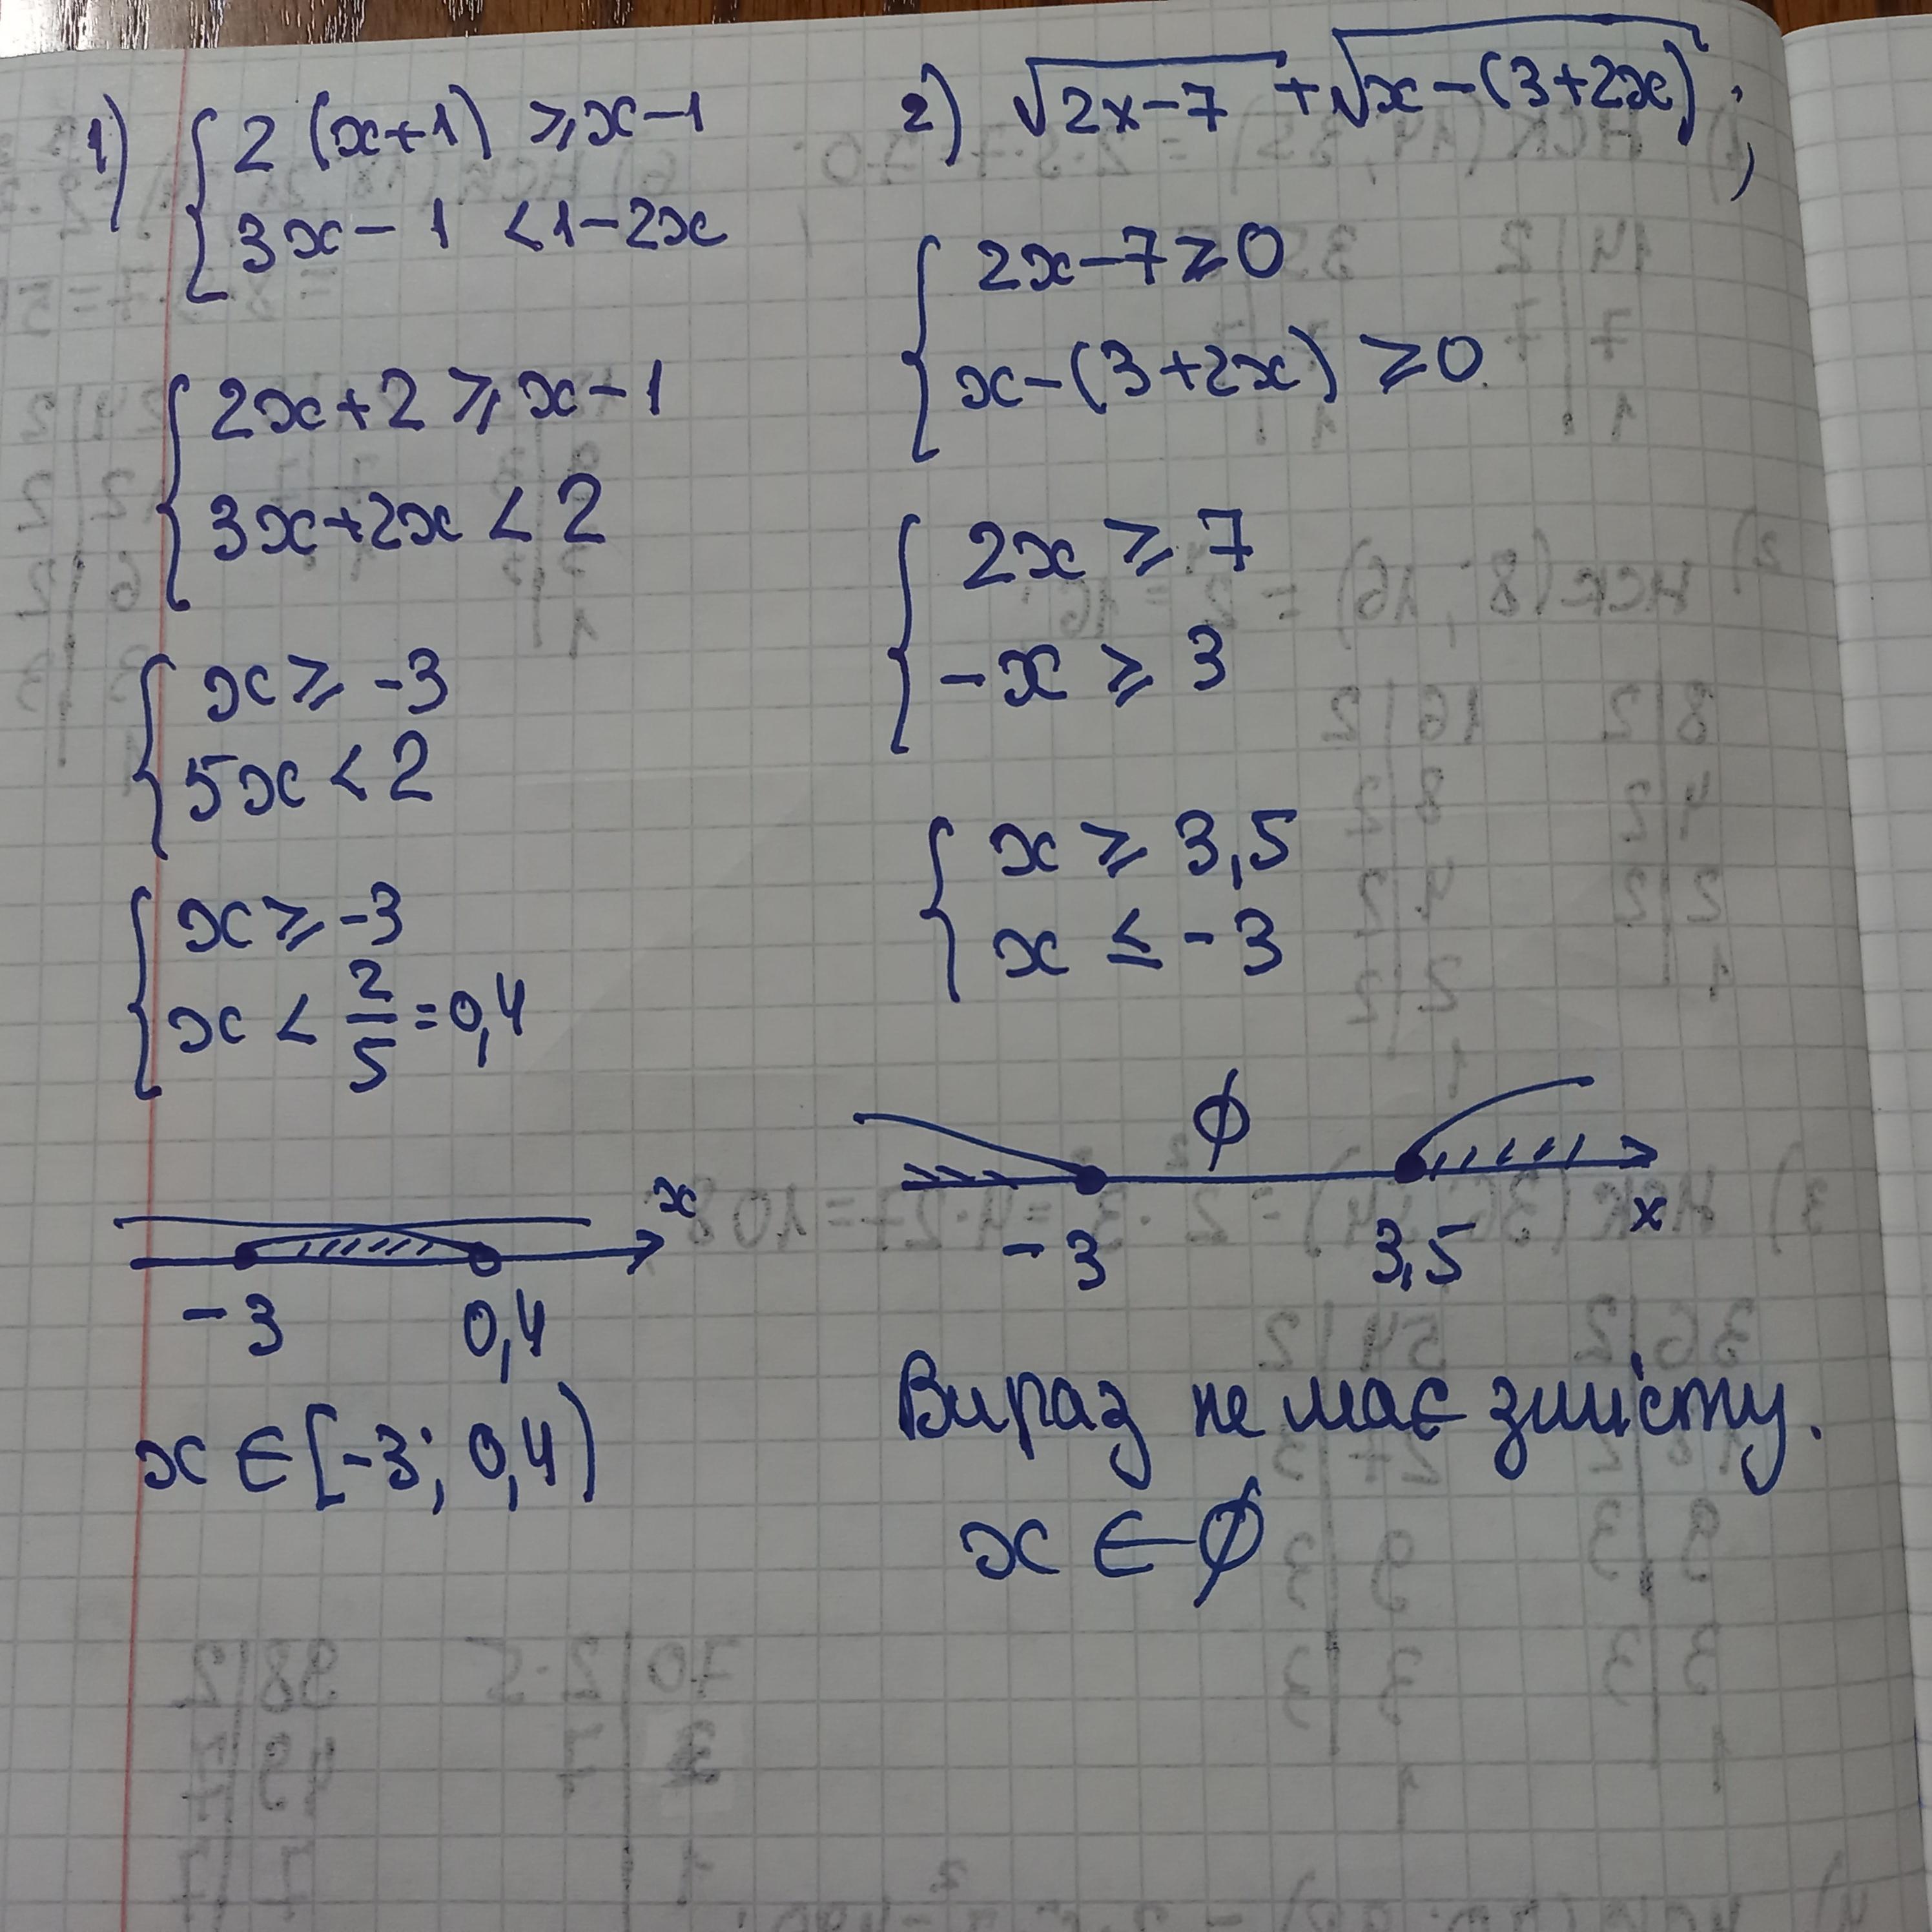 1) { 2(x+1) ⩾ x-1
3x-1 < 1-2x
{ 2x+2 ⩾ x-1
3x+2x < 2
{ x ⩾ -3
5x < 2
{ x ⩾ -3
x < 2/5 = 0,4
x
-3 0,4
x ∈ [-3; 0,4)
2) √(2x-7) + √(x-(3+2x)) ;
{ 2x-7 ⩾ 0
x-(3+2x) ⩾ 0
{ 2x ⩾ 7
-x ⩾ 3
{ x ⩾ 3,5
x ≤ -3
∅
-3 3,5 x
Вираз не має змісту.
x ∈ ∅